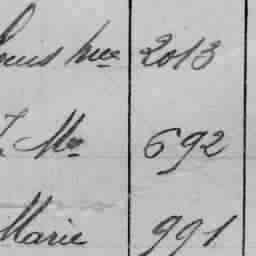 Louis Mce 2013
J. Me 692
Marie 991